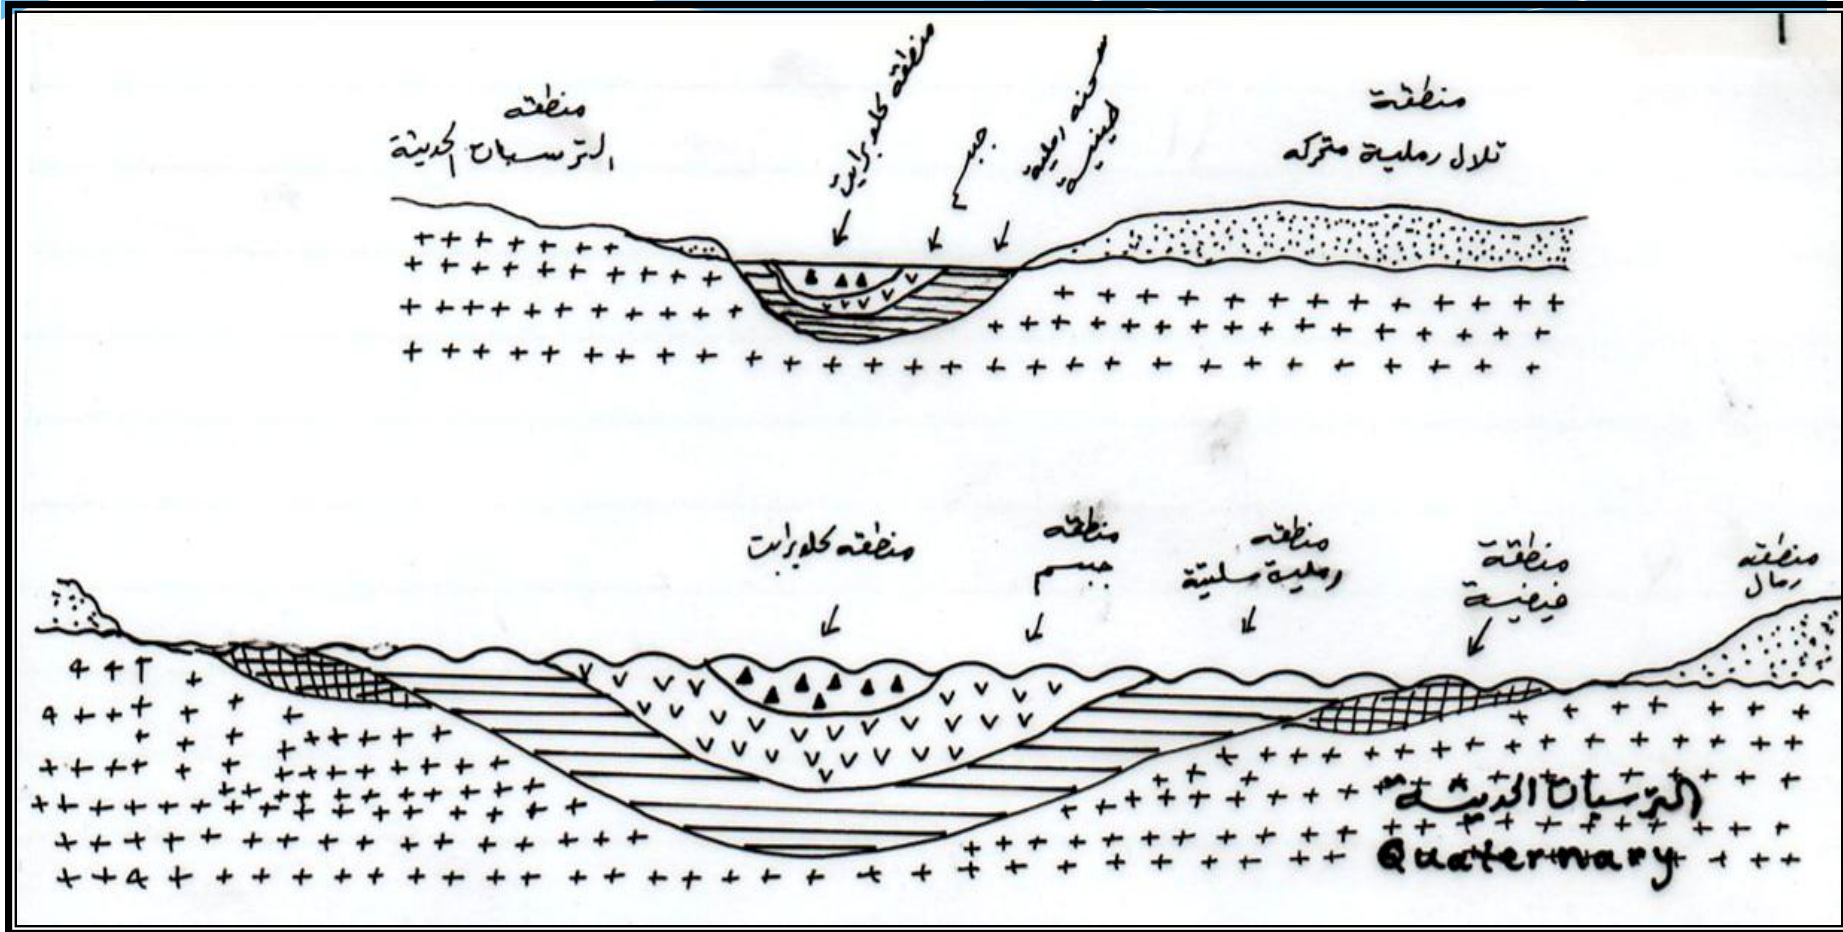 منطقة
الترسبات الحديثة
منطقة كلوبرايت
جبس
سحنه رملية
طينية
منطقة
تلال رملية متحركه
منطقه كلوبرايت
منطقه
جبسم
منطقه
رملية سلتية
منطقة
فيضية
منطقه
رمال
الترسبات الحديثة
Quaternary